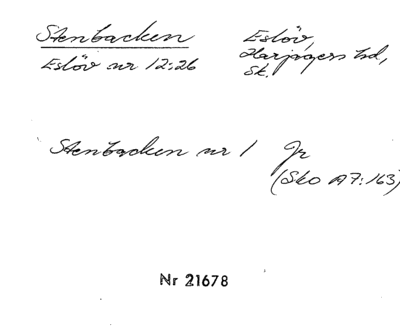 Stenbacken
Eslöv nr 12:26
Eslöv,
Harjagers hd,
Sk.
Stenbacken nr 1 Jr
(Sko A7:163)
Nr 21678